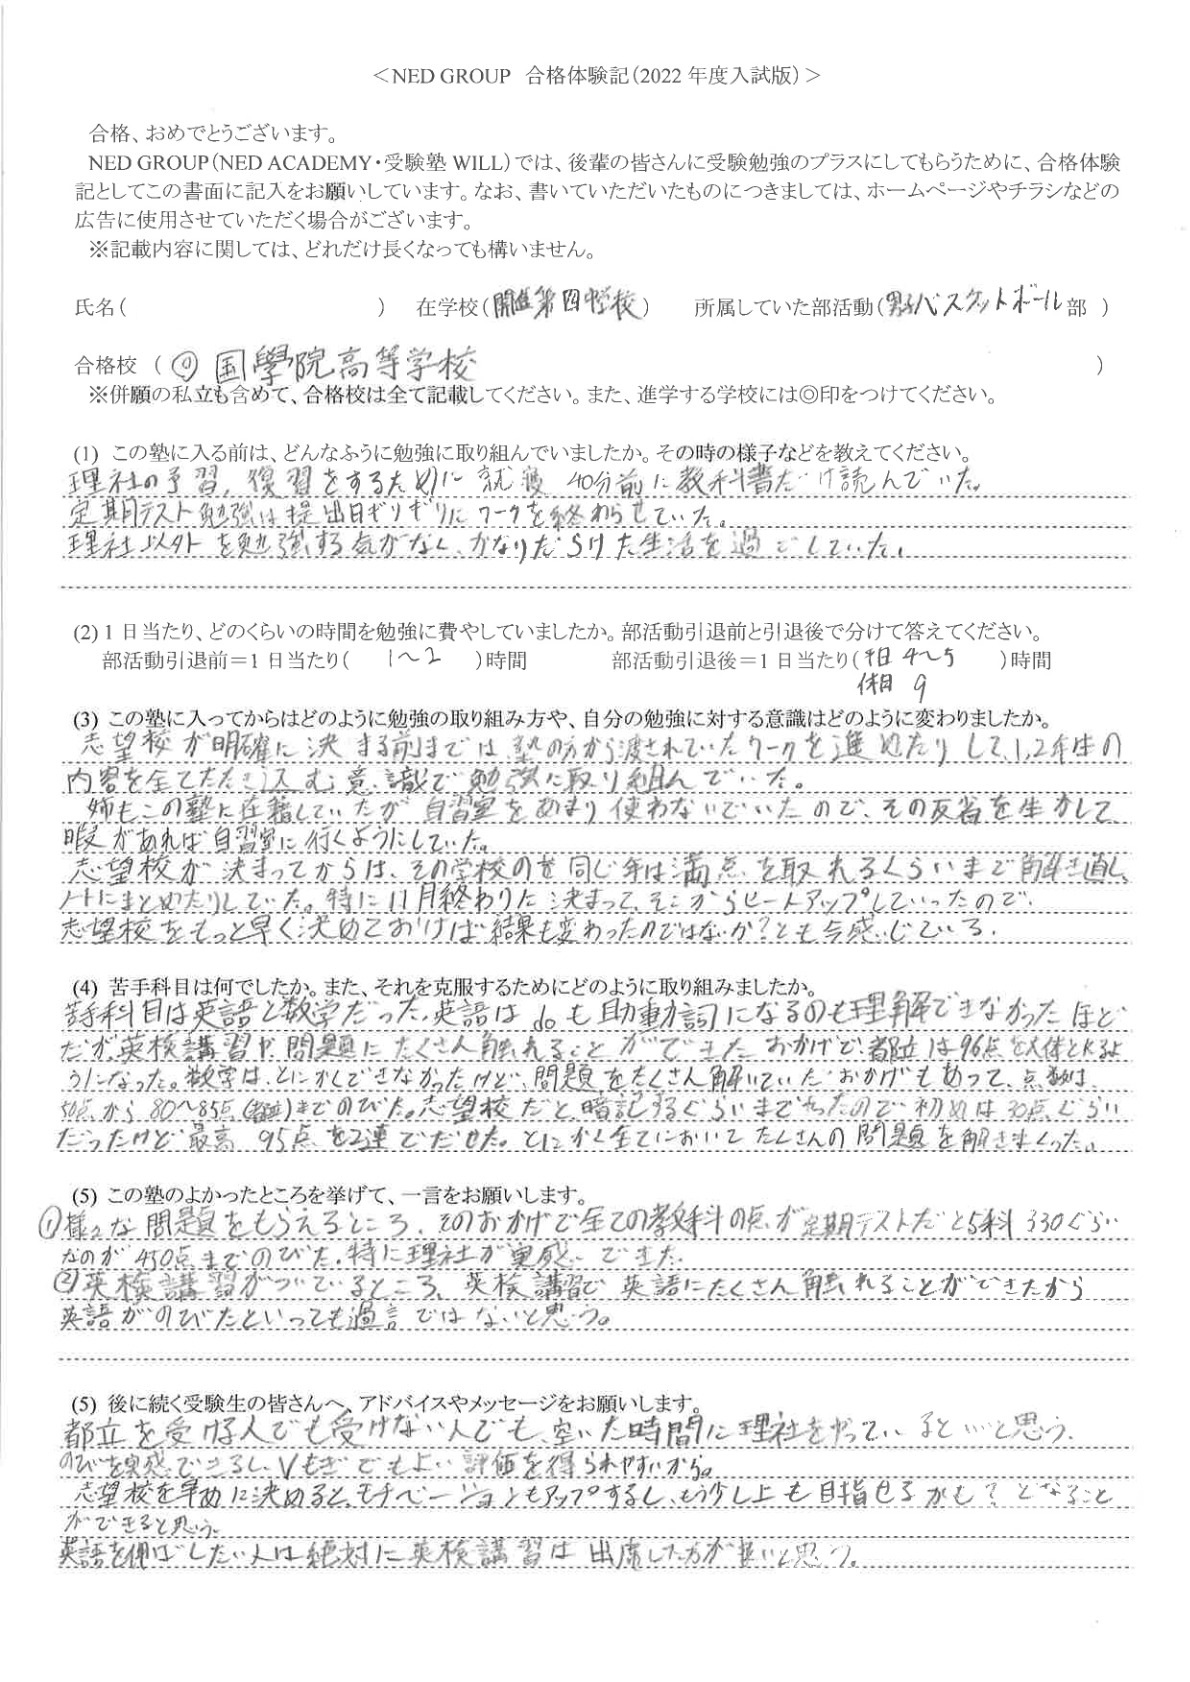 ＜NED GROUP 合格体験記（2022 年度入試版）＞
合格、おめでとうございます。
NED GROUP（NED ACADEMY・受験塾 WILL）では、後輩の皆さんに受験勉強のプラスにしてもらうために、合格体験
記としてこの書面に記入をお願いしています。なお、書いていただいたものにつきましては、ホームページやチラシなどの
広告に使用させていただく場合がございます。
※記載内容に関しては、どれだけ長くなっても構いません。
氏名（ ） 在学校（開進第四中学校） 所属していた部活動（男子バスケットボール部 ）
合格校 （◎ 国學院高等学校 ）
※併願の私立も含めて、合格校は全て記載してください。また、進学する学校には◎印をつけてください。
(1) この塾に入る前は、どんなふうに勉強に取り組んでいましたか。その時の様子などを教えてください。
理社の予習，復習をするために就寝 40分前に教科書だけ読んでいた。
定期テスト勉強は提出日ギリギリにワークを終わらせていた。
理社以外を勉強する気がなく、かなりだらけた生活を過ごしていた。
(2) 1 日当たり、どのくらいの時間を勉強に費やしていましたか。部活動引退前と引退後で分けて答えてください。
部活動引退前＝1 日当たり（ 1〜2 ）時間 部活動引退後＝1 日当たり（平日 4〜5 ）時間
休日 9
(3) この塾に入ってからはどのように勉強の取り組み方や、自分の勉強に対する意識はどのように変わりましたか。
志望校が明確に決まる前までは塾の方から渡されていたワークを進めたりして、1,2年生の
内容を全てたたき込む意識で勉強に取り組んでいた。
姉もこの塾に在籍していたが自習室をあまり使わないでいたので、その反省を生かして
暇があれば自習室に行くようにしていた。
志望校が決まってからは、その学校の同じ年は満点を取れるくらいまで解き直し、
ノートにまとめたりしていた。特に11月終わりに決まって、そこからヒートアップしていったので、
志望校をもっと早く決めておけば結果も変わったのではないか?とも今感じている.
(4) 苦手科目は何でしたか。また、それを克服するためにどのように取り組みましたか。
苦手科目は英語と数学だった。英語は doも助動詞になるのも理解できなかったほど
だが、英検講習や問題にたくさん触れることができたおかげで、都立は96点を大体とれるよ
うになった。数学は、とにかくできなかったけど、問題をたくさん解いていたおかげもあって、点数は
50点から80〜85点(都立)までのびた。志望校だと、暗記するぐらいまでやったので初めは30点ぐらい
だったけど最高 95点を2連でだせた。とにかく全てにおいてたくさんの問題を解きまくった。
(5) この塾のよかったところを挙げて、一言をお願いします。
①様々な問題をもらえるところ．そのおかげで全ての教科の点が定期テストだと5科330ぐらい
なのが 450点までのびた．特に理社が実感できた．
②英検講習がついているところ、英検講習で英語にたくさん触れることができたから
英語がのびたといっても過言ではないと思う。
(5) 後に続く受験生の皆さんへ、アドバイスやメッセージをお願いします。
都立を受ける人でも受けない人でも、空いた時間に理社をやっているといいと思う．
のびを実感できるし、Vもぎでもよい評価を得られやすいから。
志望校を早めに決めると、モチベーションもアップするし、もう少し上も目指せるかも?となること
ができると思う。
英語を伸ばしたい人は絶対に英検講習は出席した方が良いと思う。